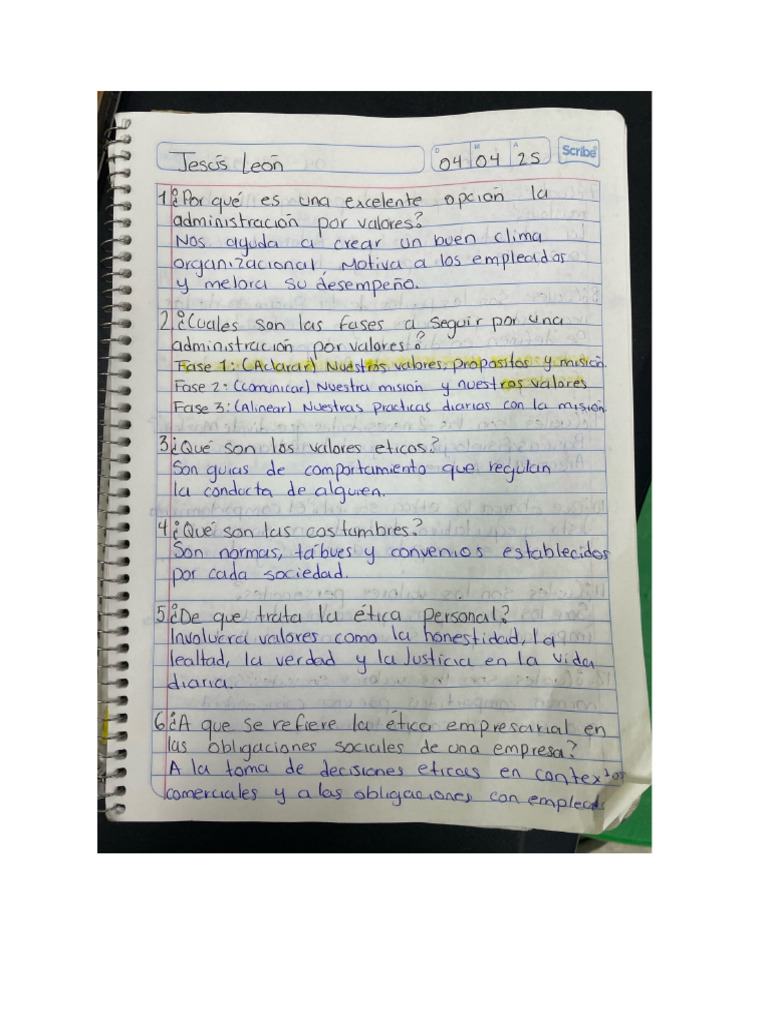 Jesús León
D M A
04 04 25
Scribe
1¿Por qué es una excelente opción la
administración por valores?
Nos ayuda a crear un buen clima
organizacional, Motiva a los empleados
y melora su desempeño.
2¿Cuales son las fases a seguir por una
administración por valores?
Fase 1: (Aclarar) Nuestros valores, propositos y misión
Fase 2: (comunicar) Nuestra misión y nuestros valores
Fase 3: (Alinear) Nuestras practicas diarias con la misión
3¿Qué son los valores eticos?
Son guias de comportamiento que regulan
la conducta de alguien.
4¿Qué son las costumbres?
Son normas, tabúes y convenios establecidos
por cada sociedad.
5¿De que trata la ética personal?
Involucra valores como la honestidad, la
lealtad, la verdad y la Justicia en la vida
diaria.
6¿A que se refiere la ética empresarial en
las obligaciones sociales de una empresa?
A la toma de decisiones eticas en contextos
comerciales y a las obligaciones con